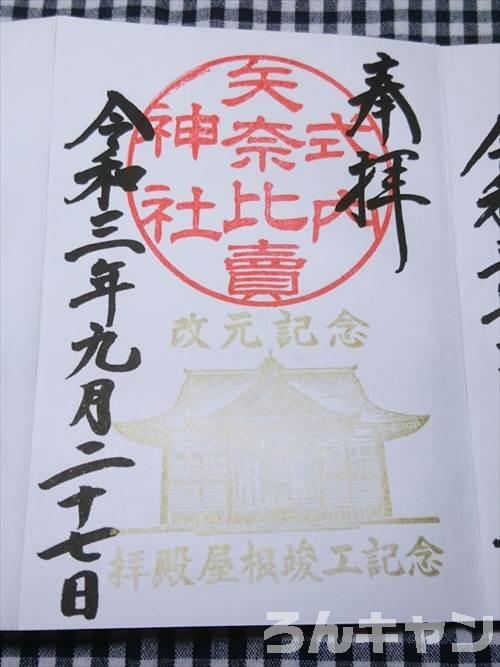 奉拝
式内
矢奈比賣
神社
改元記念
拝殿屋根竣工記念
令和三年九月二十七日
ろんキャン